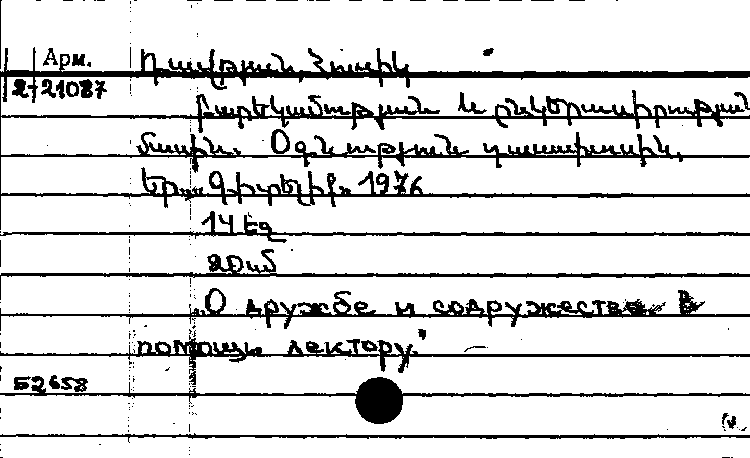 Арм.
2-21087
Դավթյան, Հրաչիկ
Բարեկամության և ընկերասիրության
մասին. Օգնություն դասախոսին,
Եր., «Գիտելիք» 1976
14 էջ
20 սմ
„О дружбе и содружестве. В
помощь лектору."
Б2658